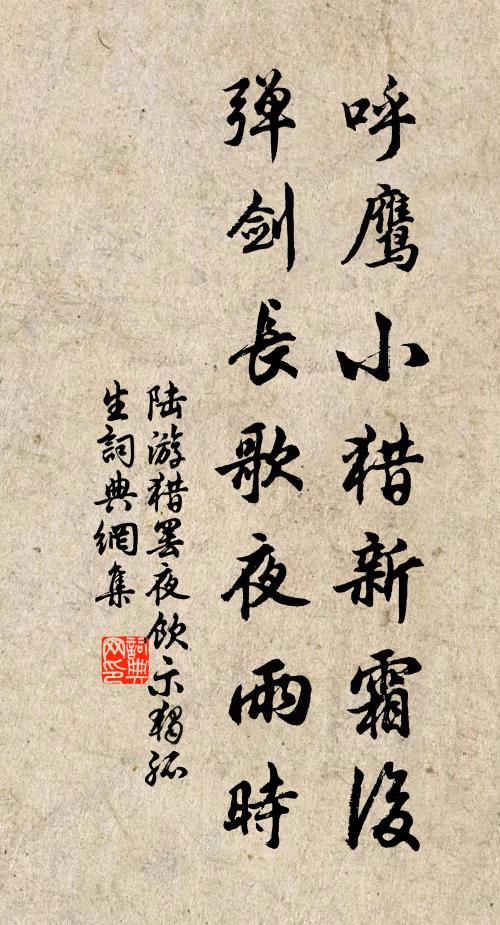 呼鹰小猎新霜後
弹剑长歌夜雨時
陆游猎罢夜饮示独孤
生詞典網集
詞典网印